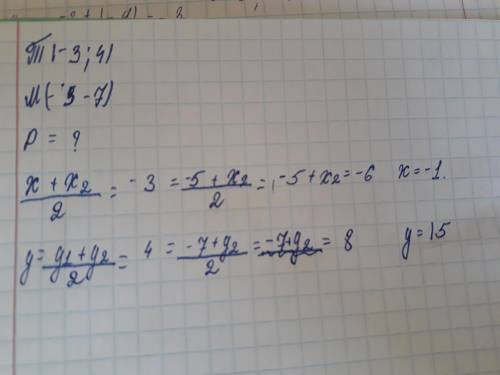 T(-3;4)
M(-5-7)
P = ?
x + x2 / 2 = -3 = -5 + x2 / 2 = , -5 + x2 = -6 x = -1.
y = y1 + y2 / 2 = 4 = -7 + y2 / 2 = -7 + y2 = 8 y = 15